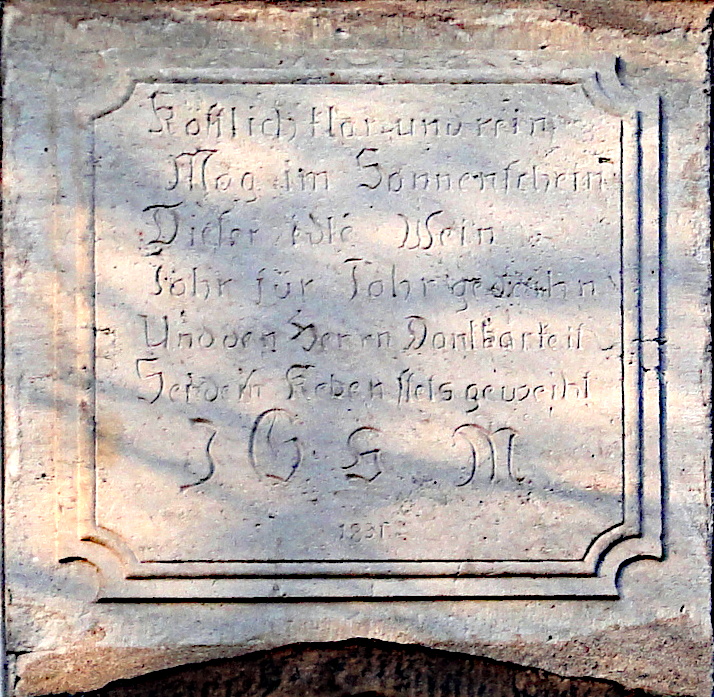 Köstlich klar und rein
Mag im Sonnenschein
Dieser edle Wein
Jahr für Jahr gedeihn
Und den Herrn Dankbarkeit
Sei dein Reben stets geweiht
I G S M
1831